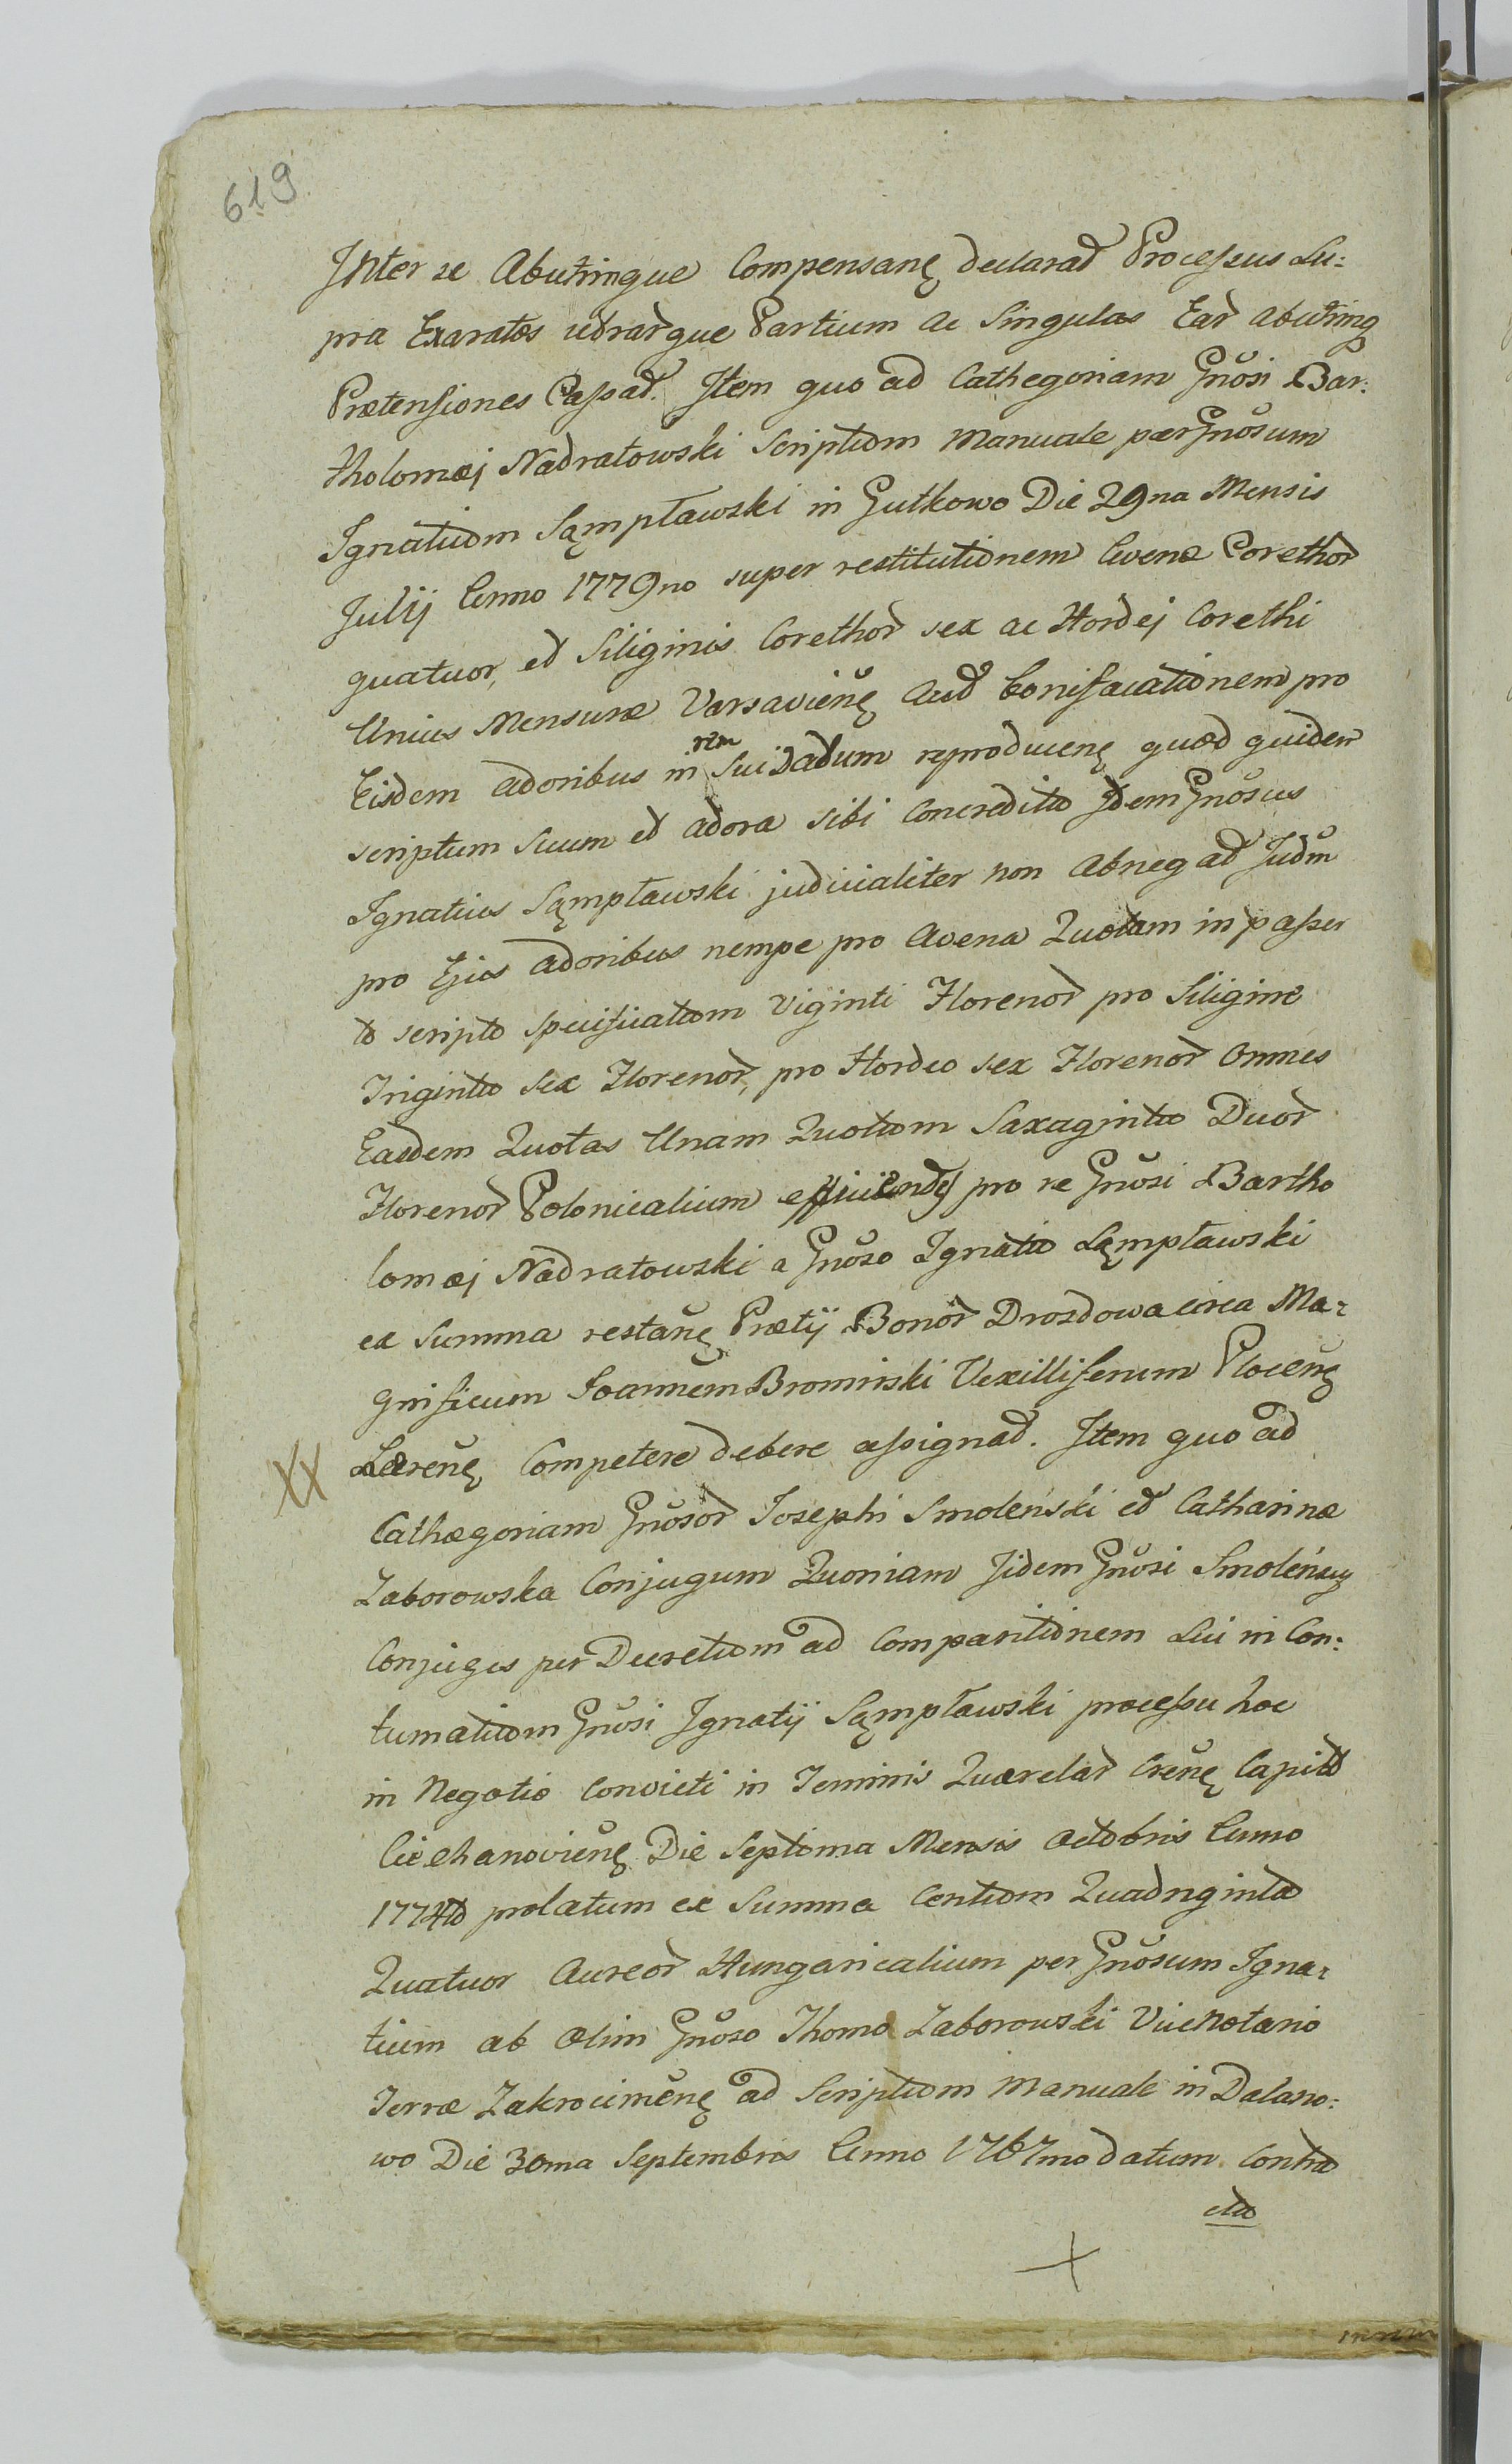 619.
Inter se Abutrinque Compensanę declarat Processus Su:
pra Exaratos utrarque Partium ac Singulas Ear abutrinq
Prætensiones Cassat. Item quo ad Cathegoriam Gnosi Bar:
tholomæj Nadratowski Scriptum Manuale per Gnosum
Ignatium Sąmpławski in Gutkowo Die 29na Mensis
Julij Anno 1779no super restitutionem Avenæ Corethor
quatuor, et Siliginis Corethor sex ac Hordej Corethi
Unius Mensuræ Varsavienę Aut bonificationem pro
Eisdem adoribus in rem Sui datum reproducenę quod quidem
scriptum Suum et adora sibi Concredita Idem Gnosus
Ignatius Sąmpławski judicialiter non Abnegat Judm
pro Ejus adoribus nempe pro Avena Quotam in passer
to scripto specificatam Viginti Florenor pro Siligine
Triginta Sex Florenor, pro Hordeo sex Florenor Omnes
Easdem Quotas Unam Quotam Saxaginta Duor
Florenor Polonicalium efficiendę pro re Gnosi Bartho
lomæj Nadratowski a Gnoso Ignatio Sąmpławski
ex Summa restanę Prætij Bonor Drozdowa circa Ma-
gnificum Joannem Brominski Vexilliferum Plocenę
XX Lærenę Competere debere assignat. Item quo ad
Cathægoriam Gnosor Josephi Smolenski et Catharinæ
Zaborowska Conjugum Quoniam Iidem Gnosi Smoleńscy
Conjuges per Decretum ad Comparitionem Sui in Con:
tumatiam Gnosi Ignatij Sąmpławski processu hoc
in Negotio Convicti in Terminis Quærelar Crenę Capitt
Ciechanovienę Die Septima Mensis Octobris Anno
1774to prolatum ex Summa Centum Quadriginta
Quatuor Aureor Hungaricalium per Gnosum Igna-
tium ab Olim Gnoso Thoma Zaborowski ViceNotario
Terræ Zakrocimenę ad Scriptum Manuale in Dalano:
wo Die 30ma Septembris Anno 1767mo datum Contra
cta